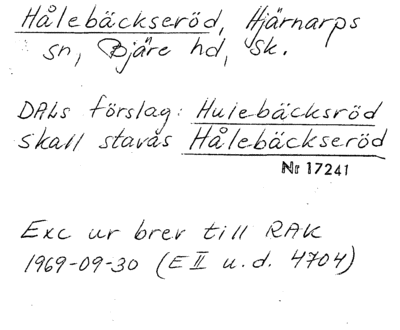 Hålebäckseröd, Hjärnarps
sn, Bjäre hd, Sk.
DALs förslag: Hulebäcksröd
skall stavas Hålebäckseröd
Nr 17241
Exc ur brev till RAK
1969-09-30 (E II u.d. 4704)